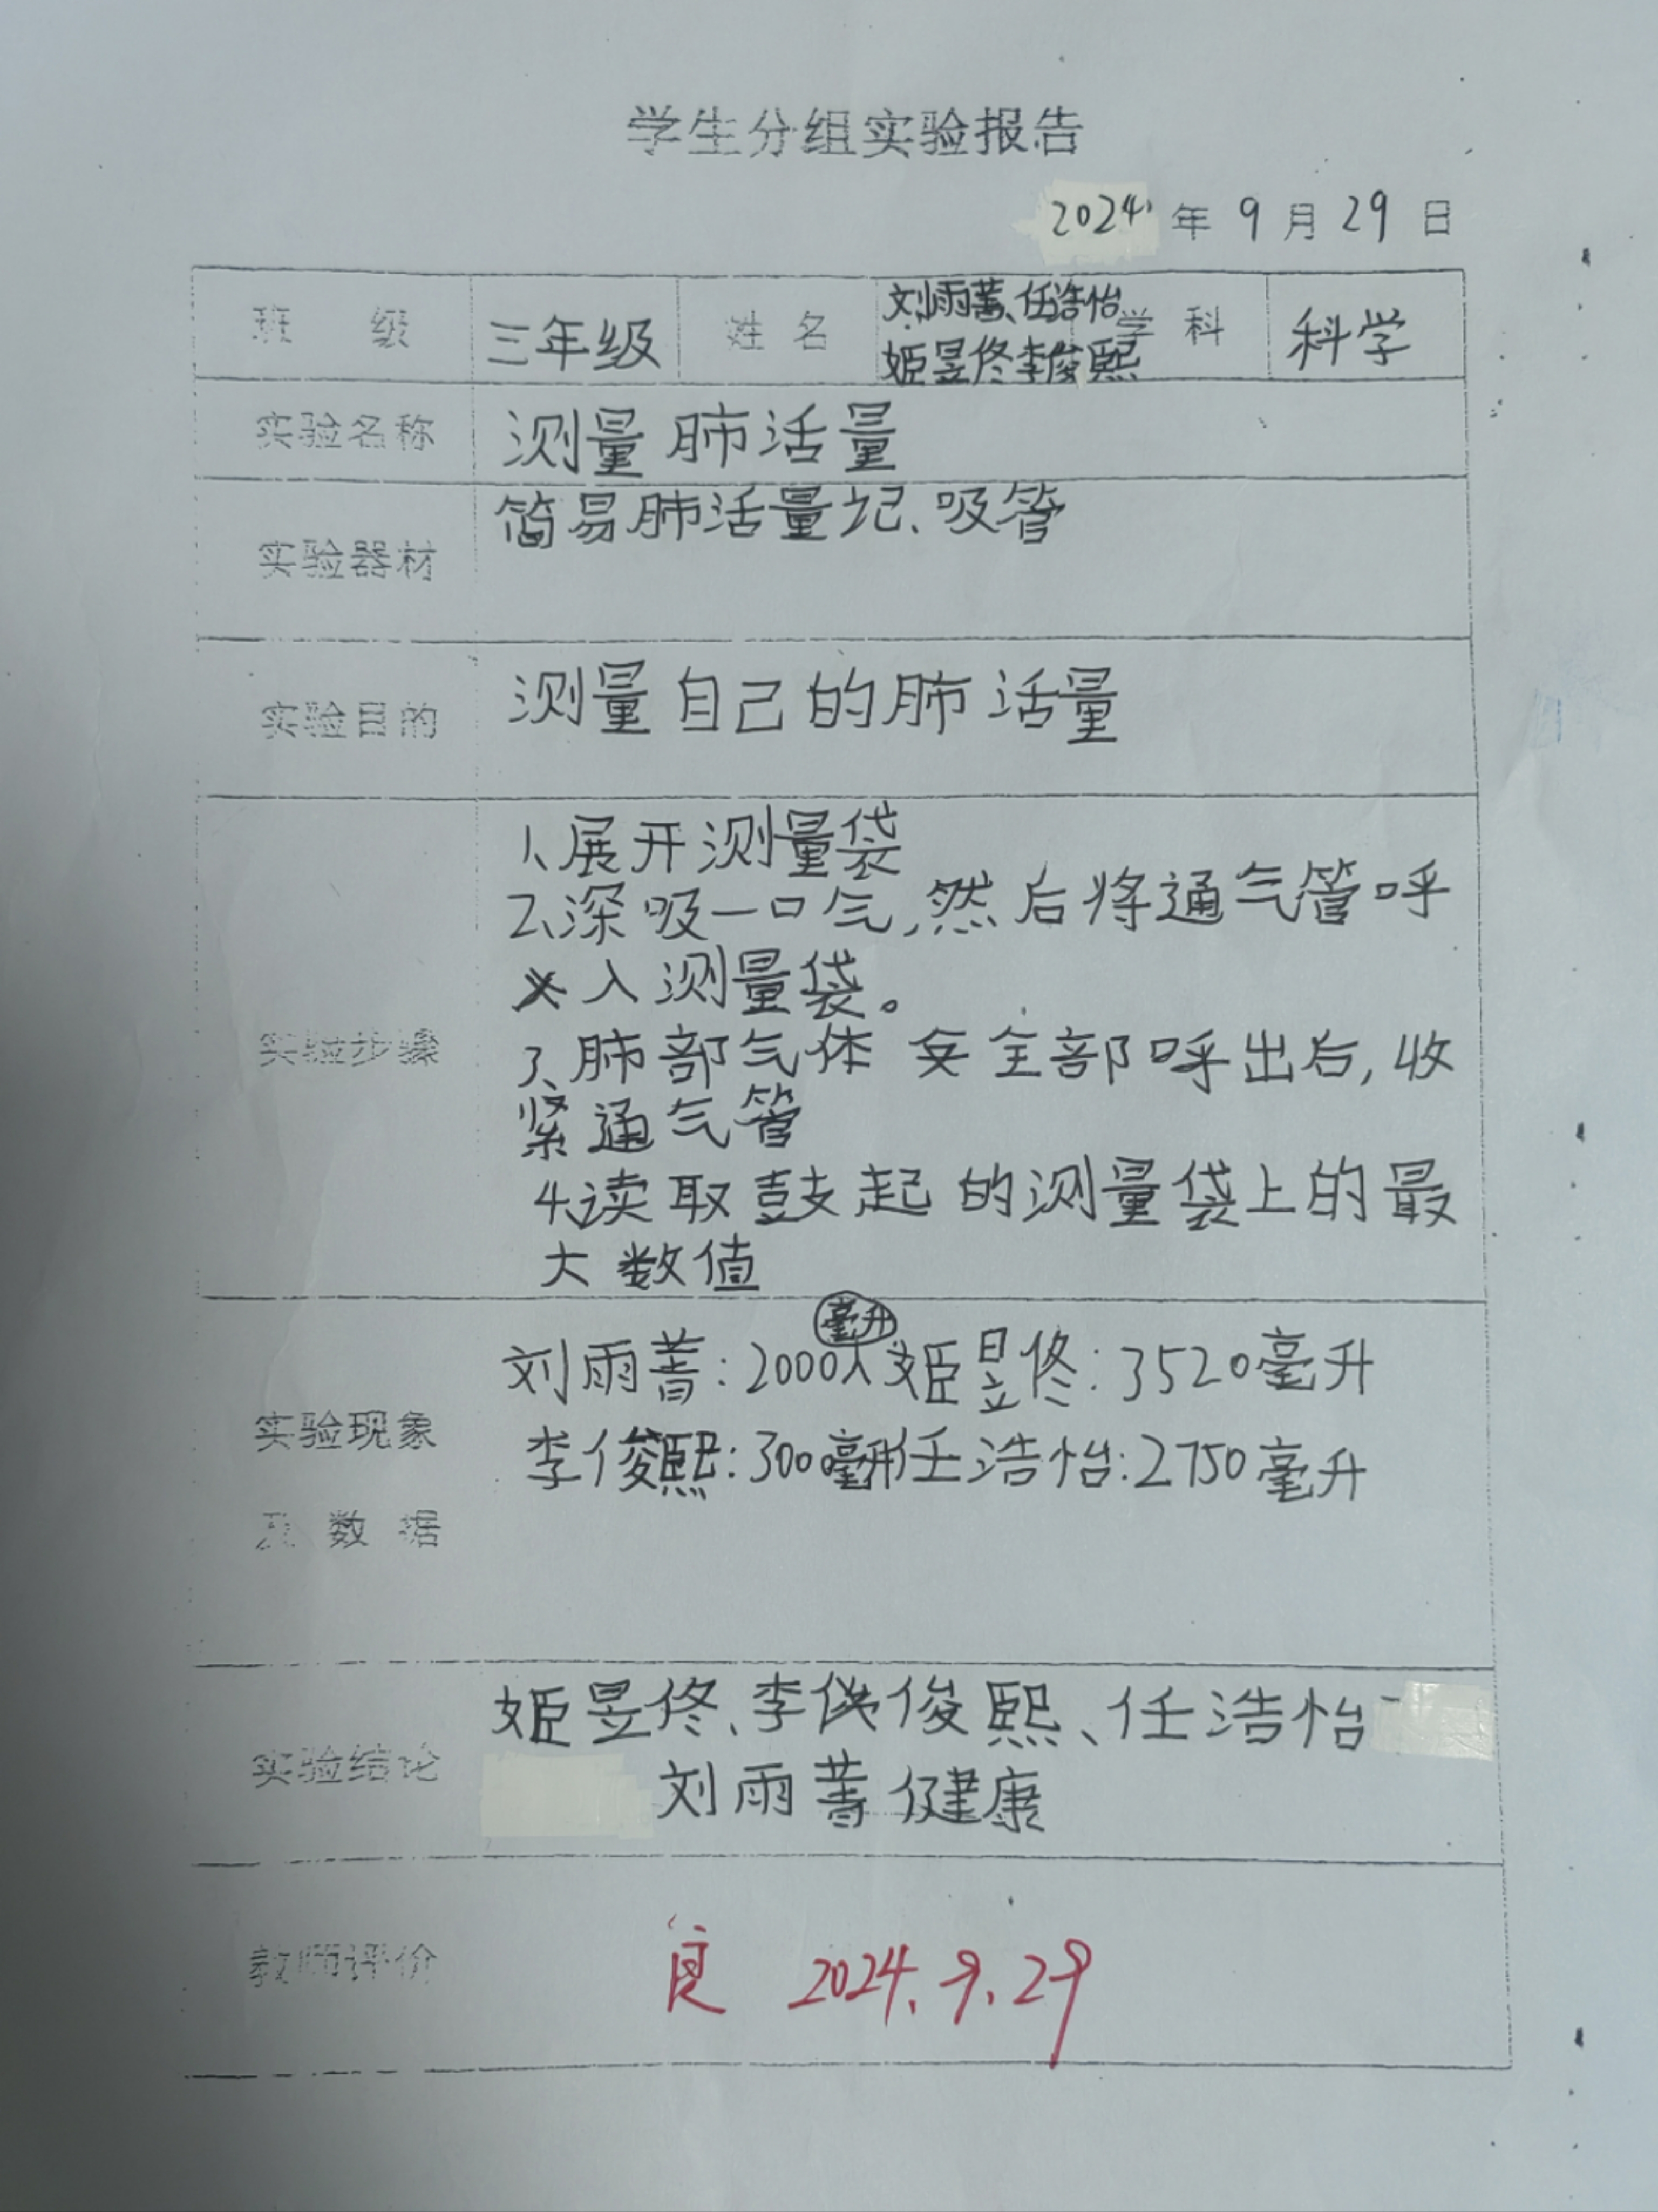 学生分组实验报告
2024年9月29日
班 级 三年级 姓 名 刘雨菁、任浩怡 姬昱佟李俊熙 学 科 科学
实验名称 测量肺活量
实验器材 简易肺活量记、吸管
实验目的 测量自己的肺活量
实验步骤
1、展开测量袋
2、深吸一口气,然后将通气管呼
入测量袋。
3、肺部气体 全部呼出后,收
紧通气管
4、读取鼓起的测量袋上的最
大数值
实验现象
及 数 据
刘雨菁:2000毫升 姬昱佟:3520毫升
李俊熙:3000毫升 任浩怡:2750毫升
实验结论
姬昱佟、李俊熙、任浩怡
刘雨菁健康
教师评价 良 2024.9.29